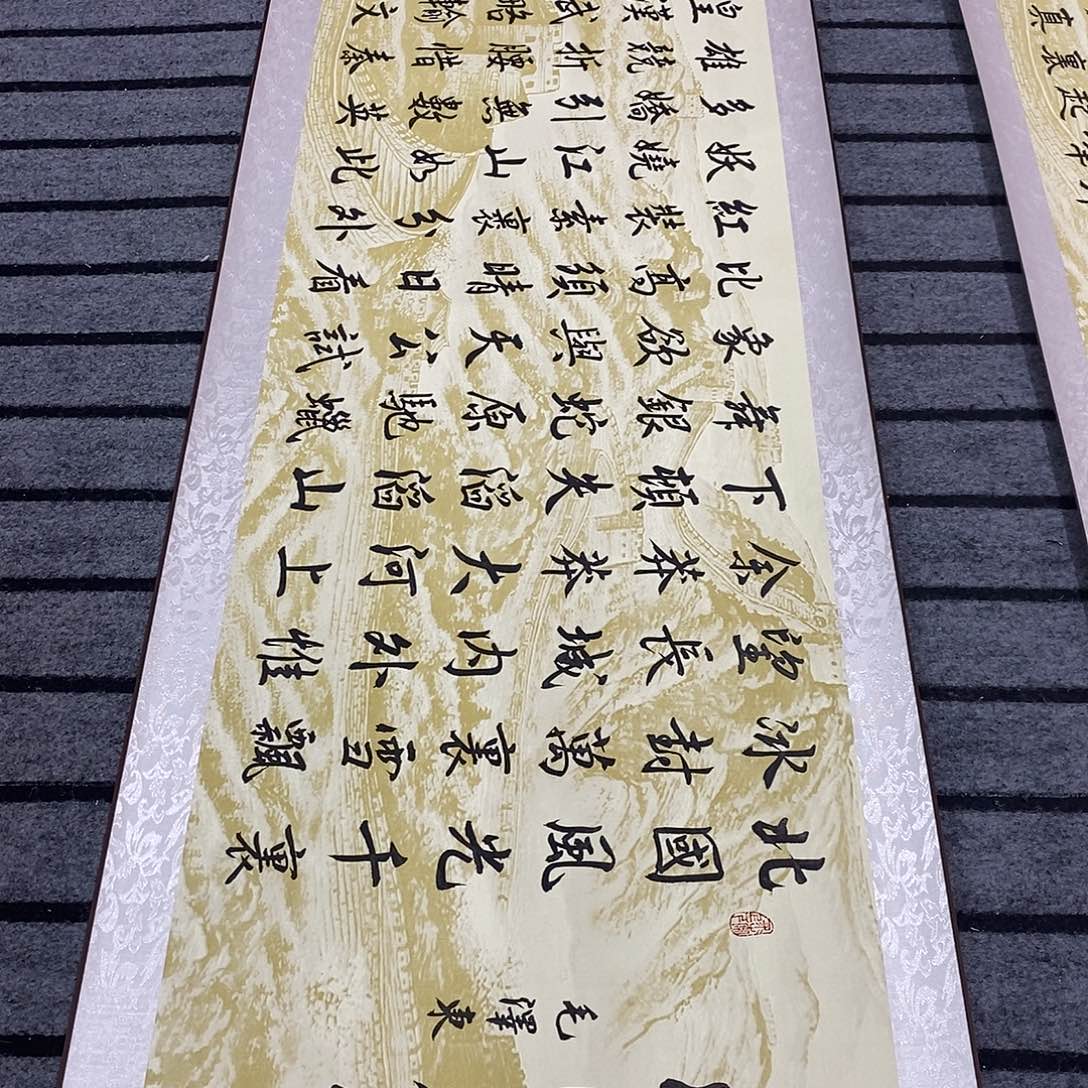 毛澤東
北國風光千裏
冰封萬裏雪飄
望長城內外惟
余莽莽大河上
下頓失滔滔山
舞銀蛇原馳蠟
象欲與天公試
比高須晴日看
紅裝素裹分外
妖嬈江山如此
多嬌引無數英
雄競折腰惜秦
皇漢武略輸文
真
裏
起